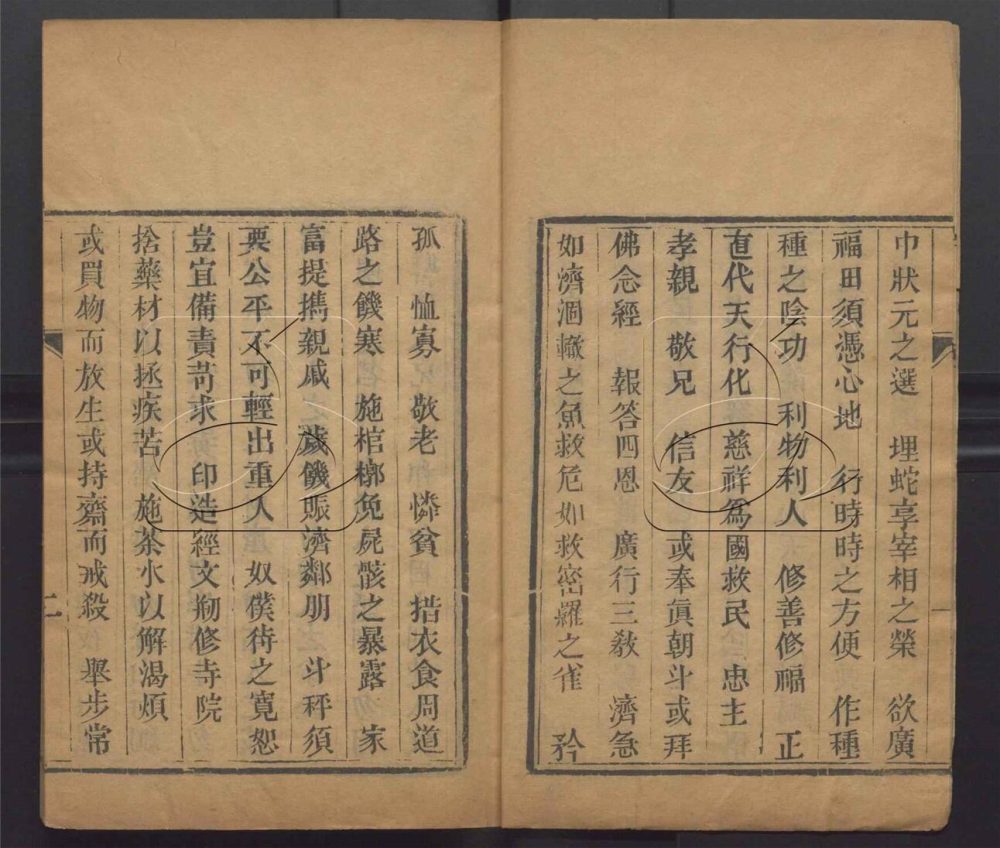 中狀元之選　埋蛇享宰相之榮　欲廣
福田須憑心地　行時時之方便　作種
種之陰功　利物利人　修善修福　正
直代天行化　慈祥爲國救民　忠主
孝親　敬兄　信友　或奉眞朝斗或拜
佛念經　報答四恩　廣行三敎　濟急
如濟涸轍之魚救危如救密羅之雀　矜
孤　恤寡　敬老　憐貧　措衣食周道
路之饑寒　施棺槨免屍骸之暴露　家
富提擕親戚　歲饑賑濟鄰朋　斗秤須
要公平不可輕出重入　奴僕待之寬恕
豈宜備責苛求　印造經文剏修寺院
捨藥材以拯疾苦　施茶水以解渴煩
或買物而放生或持齋而戒殺　舉步常
二